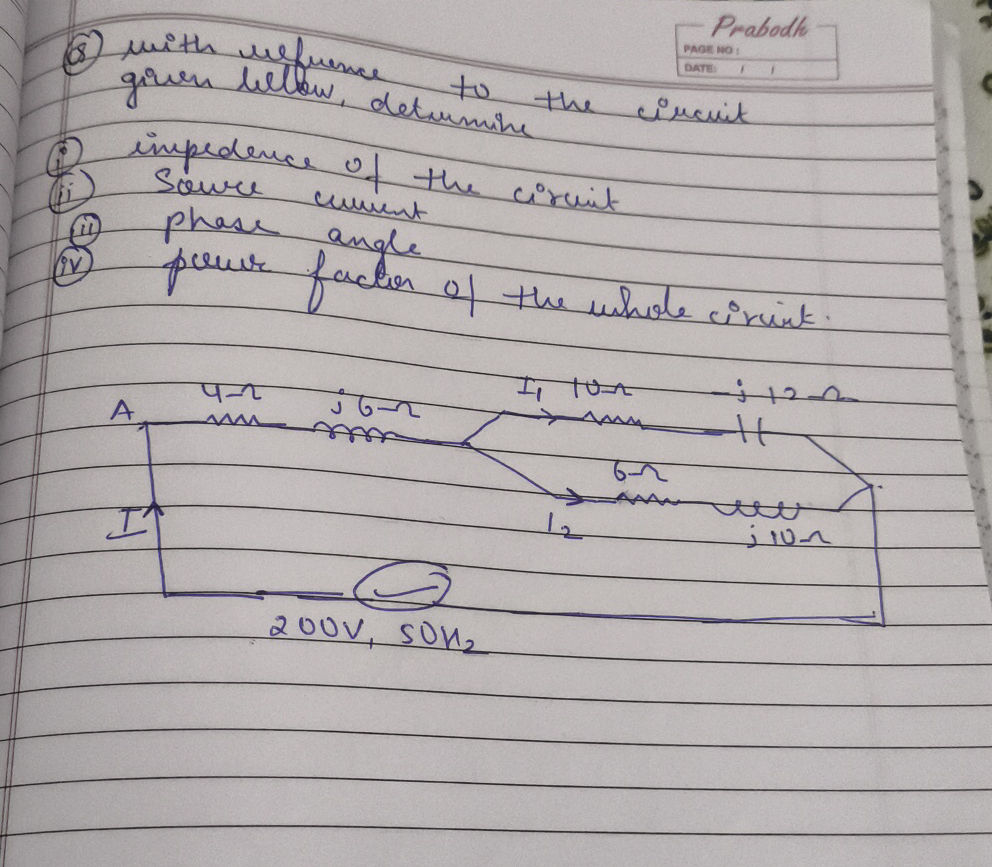 Prabodh
PAGE NO :
DATE: / /
⑧ with refrence to the circuit
given bellow, determine
ⓘ impedence of the circuit
ii) Source current
ⓘⓘ phase angle
ⓘⓥ power factor of the whole circuit.
A 4Ω j6Ω I₁ 10Ω -j12Ω
6Ω
I I₂ j10Ω
200V, 50Hz